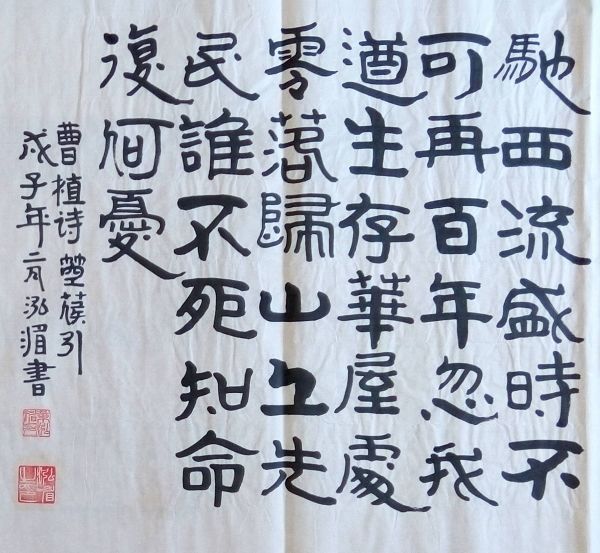 馳西流盛時不
可再百年忽我
遒生存華屋處
零落歸山丘先
民誰不死知命
復何憂
曹植诗箜篌引
戊子年二月泓湄書